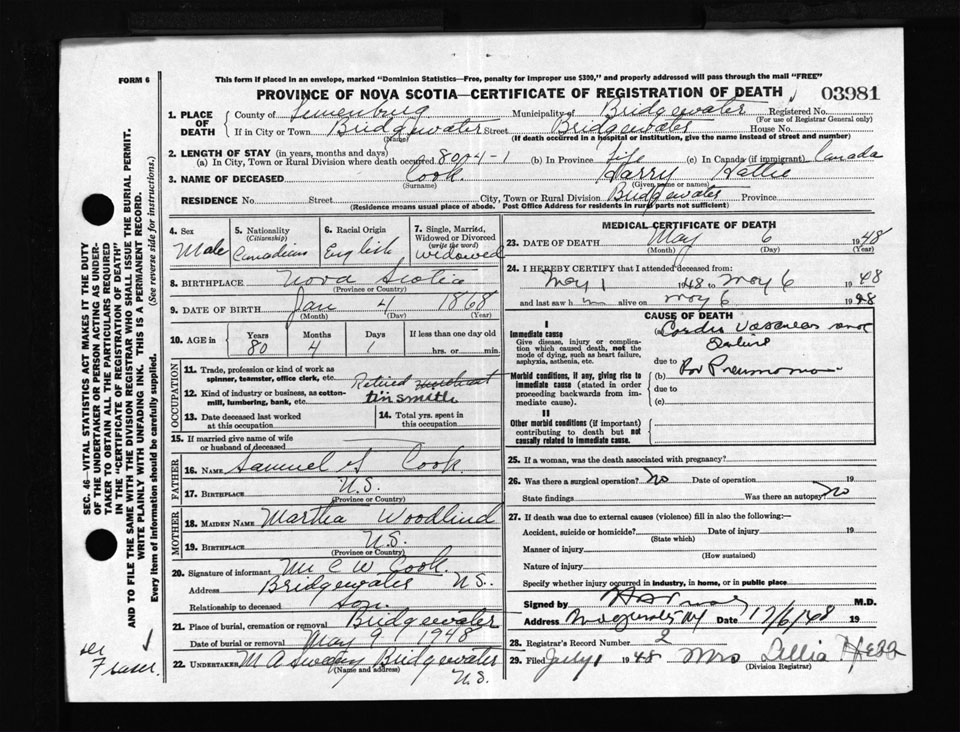 FORM 6
This form if placed in an envelope, marked "Dominion Statistics—Free, penalty for improper use $300," and properly addressed will pass through the mail "FREE"
PROVINCE OF NOVA SCOTIA—CERTIFICATE OF REGISTRATION OF DEATH 03981
1. PLACE OF DEATH
County of Lunenburg Municipality of Bridgewater Registered No.
(For use of Registrar General only)
If in City or Town Bridgewater Street Bridgewater House No.
(Name) (If death occurred in a hospital or institution, give the name instead of street and number)
2. LENGTH OF STAY (in years, months and days)
(a) In City, Town or Rural Division where death occurred 80-4-1 (b) In Province Life (c) In Canada (if immigrant) Canada
3. NAME OF DECEASED Cook Harry Hattie
(Surname) (Given name or names)
RESIDENCE No. Street City, Town or Rural Division Bridgewater Province
(Residence means usual place of abode. Post Office Address for residents in rural parts not sufficient)
4. Sex Male
5. Nationality (Citizenship) Canadian
6. Racial Origin English
7. Single, Married, Widowed or Divorced (write the word) widowed
8. BIRTHPLACE Nova Scotia
(Province or Country)
9. DATE OF BIRTH Jan 4 1868
(Month) (Day) (Year)
10. AGE in Years 80 Months 4 Days 1 If less than one day old hrs. or min.
OCCUPATION
11. Trade, profession or kind of work as spinner, teamster, office clerk, etc. Retired
12. Kind of industry or business, as cotton-mill, lumbering, bank, etc. tinsmith
13. Date deceased last worked at this occupation
14. Total yrs. spent in this occupation
15. If married give name of wife or husband of deceased
FATHER
16. NAME Samuel Cook
17. BIRTHPLACE N.S.
(Province or Country)
MOTHER
18. MAIDEN NAME Martha Woodlind
19. BIRTHPLACE N.S.
(Province or Country)
20. Signature of informant Mr C W Cook
Address Bridgewater N.S.
Relationship to deceased son
21. Place of burial, cremation or removal Bridgewater
Date of burial or removal May 9 1948
22. UNDERTAKER M A Bridgewater
(Name and address) N.S.
MEDICAL CERTIFICATE OF DEATH
23. DATE OF DEATH May 6 1948
(Month) (Day) (Year)
24. I HEREBY CERTIFY that I attended deceased from
May 1 1948 to May 6 1948
and last saw h im alive on May 6 1948
CAUSE OF DEATH
I
Immediate cause
Give disease, injury or complication which caused death, not the mode of dying, such as heart failure, asphyxia, asthenia, etc.
(a) Cardio Vascular
Failure
due to
Morbid conditions, if any, giving rise to immediate cause (stated in order proceeding backwards from immediate cause).
(b) Pneumonia
due to
(c)
II
Other morbid conditions (if important) contributing to death but not causally related to immediate cause.
25. If a woman, was the death associated with pregnancy?
26. Was there a surgical operation? No Date of operation 19
State findings Was there an autopsy No
27. If death was due to external causes (violence) fill in also the following:—
Accident, suicide or homicide? Date of injury 19
(State which)
Manner of injury
(How sustained)
Nature of injury
Specify whether injury occurred in industry, in home, or in public place
Signed by M.D.
Address Bridgewater Date 17/6/48
28. Registrar's Record Number 2
29. Filed July 1 1948 Mrs Lellia Hebb
(Division Registrar)
SEC. 46—VITAL STATISTICS ACT MAKES IT THE DUTY
OF THE UNDERTAKER OR PERSON ACTING AS UNDERTAKER TO OBTAIN ALL THE PARTICULARS REQUIRED
IN THE "CERTIFICATE OF REGISTRATION OF DEATH"
AND TO FILE THE SAME WITH THE DIVISION REGISTRAR WHO SHALL ISSUE THE BURIAL PERMIT.
WRITE PLAINLY WITH UNFADING INK. THIS IS A PERMANENT RECORD.
Every item of information should be carefully supplied. (See reverse side for instructions.)
Fraser